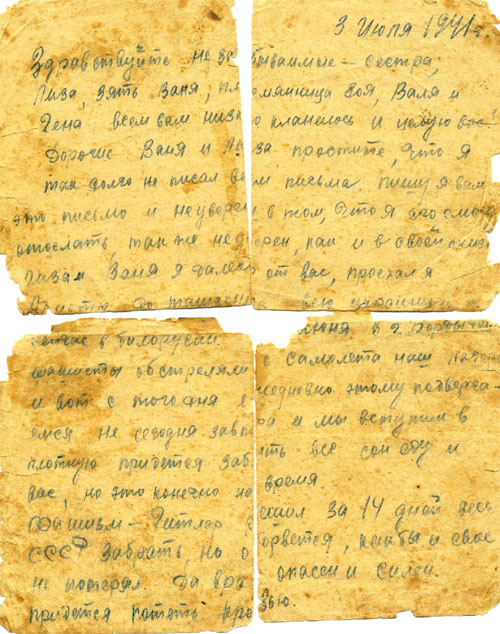 3 Июля 1941 г.
Здравствуйте незабываимые – сестра,
Лиза, зять Ваня, племянница Зоя, Валя и
Гена всем вам низко кланеюсь и целую вас!
Дорогие Ваня и Лиза простите, что я
так долго не писал вам письма, пишу я вам
это письмо и неуверен в том, что я его смогу
отослать, так же неуверен, как и в своей жизни
Ваня я далеко от вас, проехал я
всю украину
сейчас в билорусии. июня в г.
фашисты обстреляли с самолета наш
и вот с того дня подверга
емся не сегодня завтра и мы вступим в
плотную придется забыть все сон еду и
вас, но это конечно на время.
Фашизм – Гитлер за 14 дней весь
СССР забрать, но сорвется, как бы и свое
не потерял. Да враг опасен и силен.
придется потеть кровью.